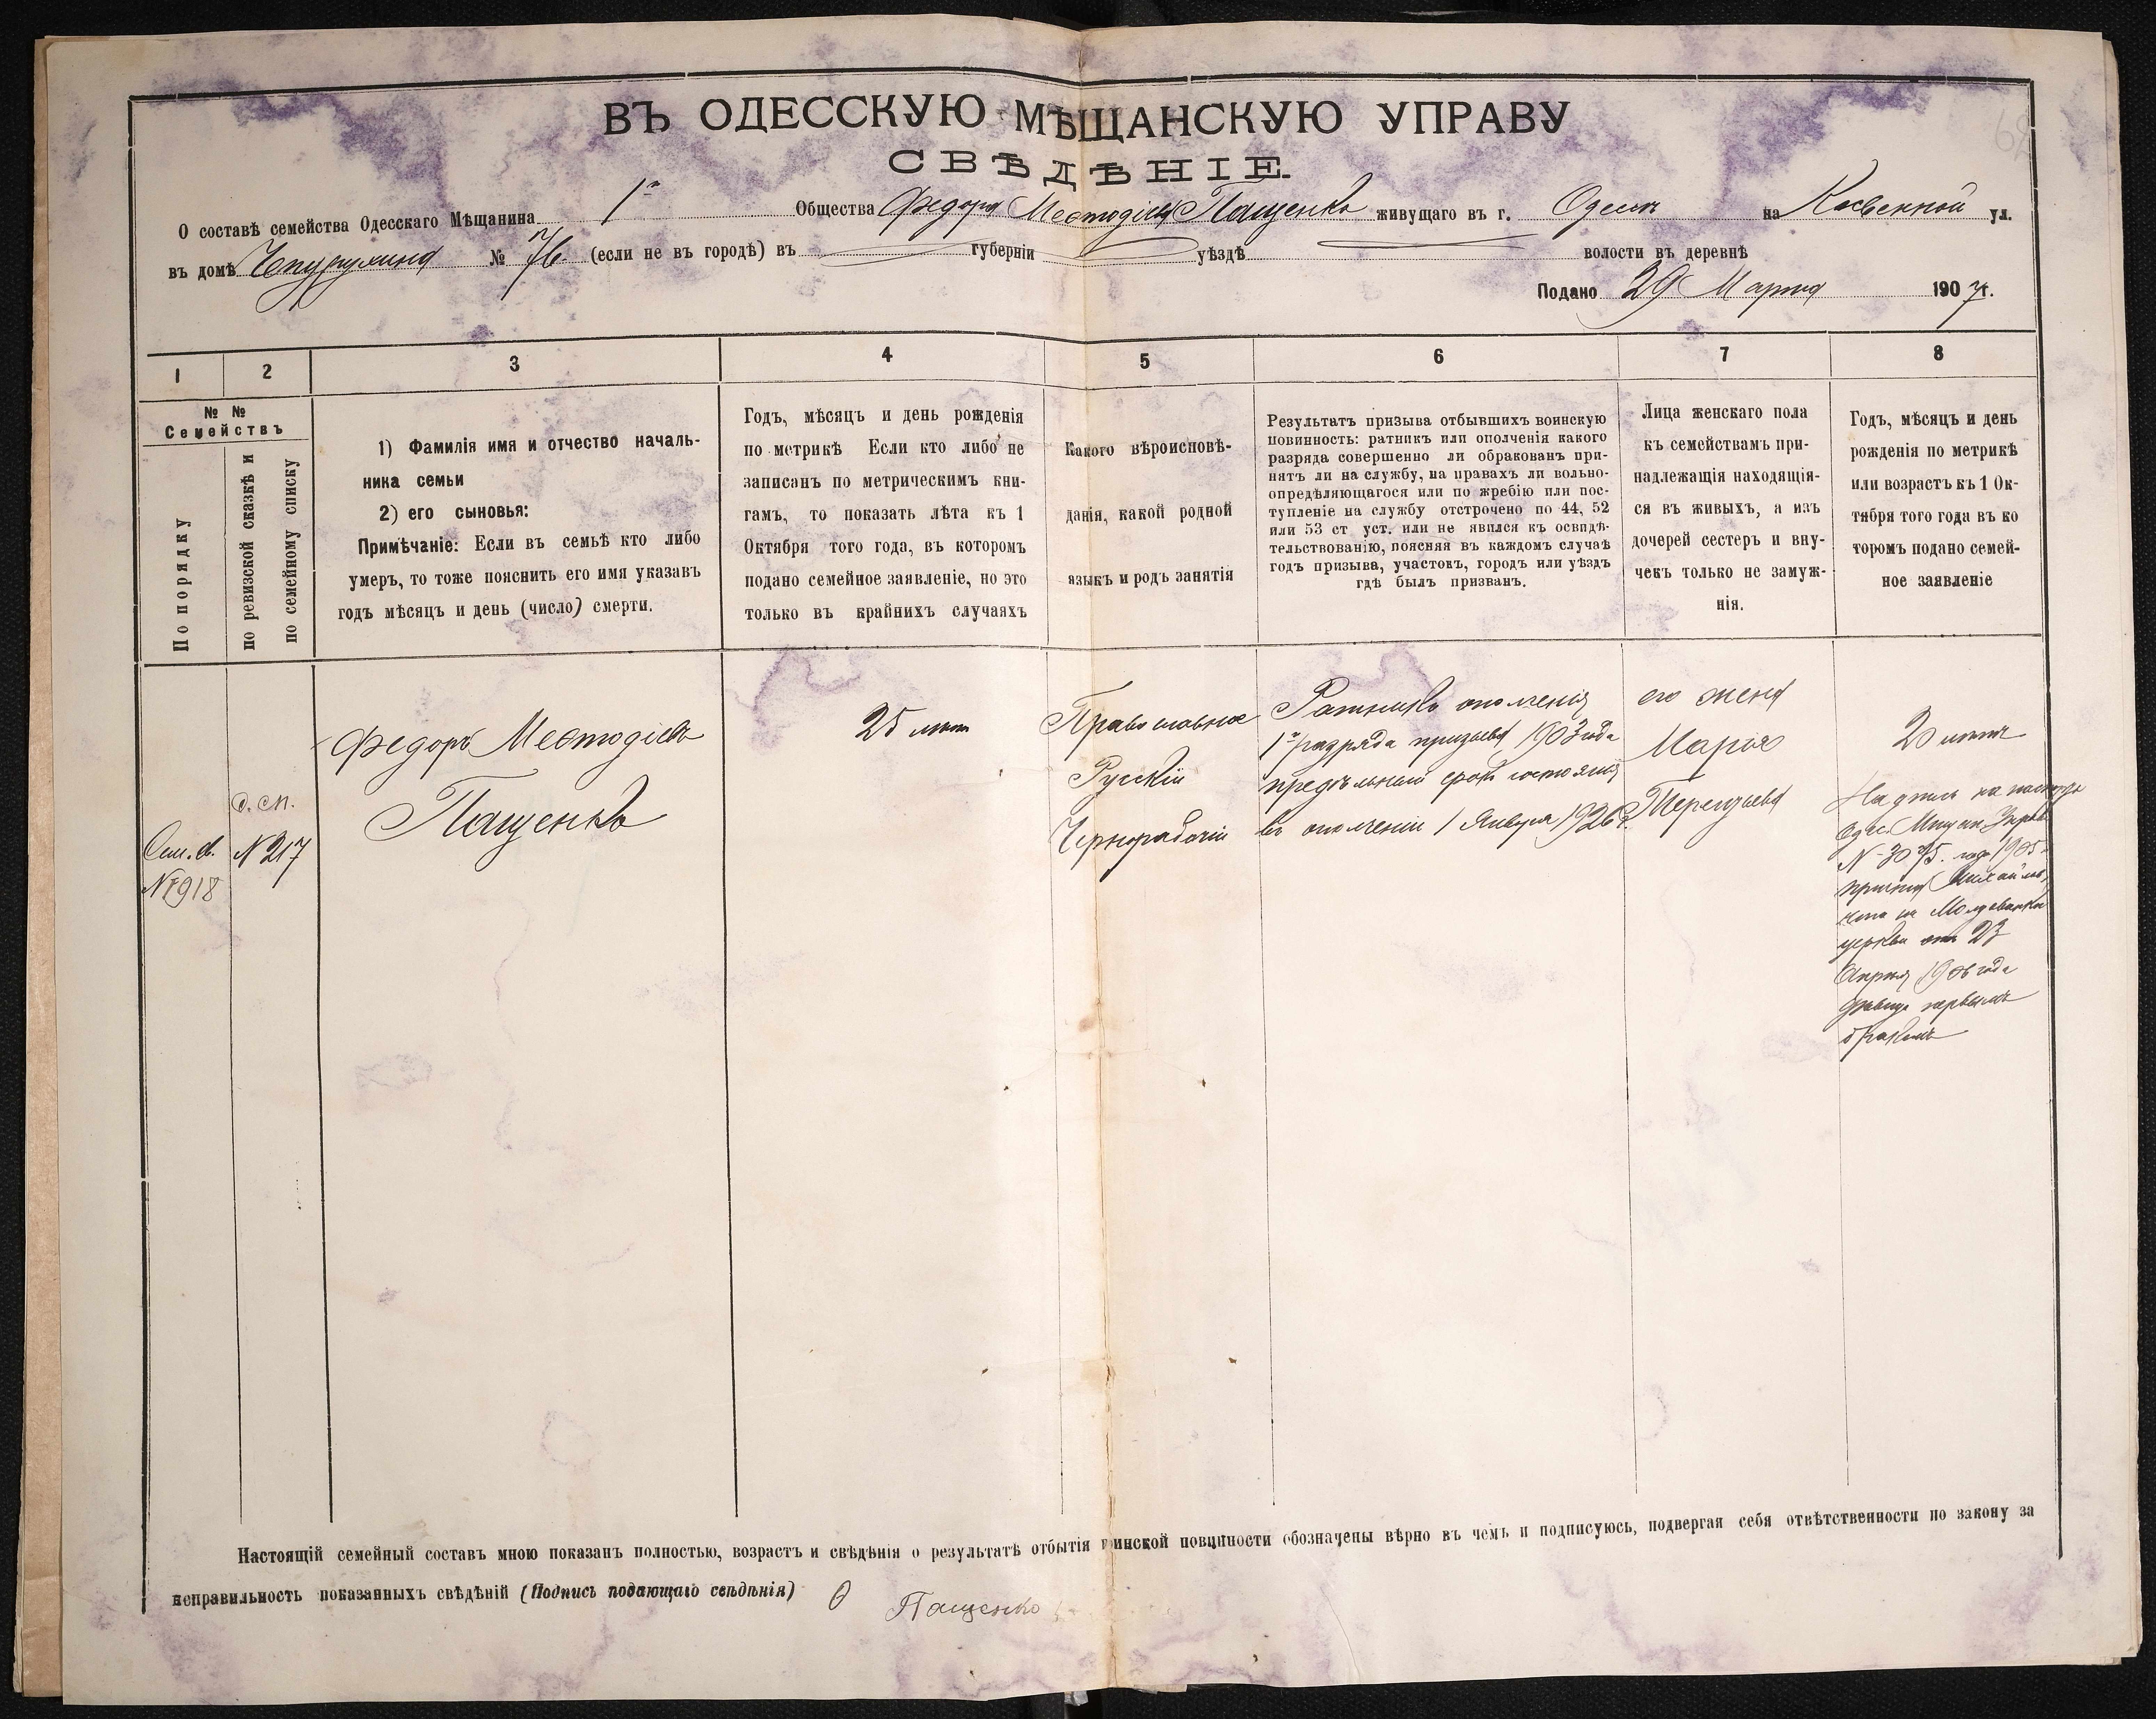 ВЪ ОДЕССКУЮ МѢЩАНСКУЮ УПРАВУ
СВѢДѢНІЕ.
О составѣ семейства Одесскаго Мѣщанина 1го Общества Федора Меѳодіева Пащенко живущаго въ г. Одессѣ на Косвенной ул.
въ домѣ № 76 (если не въ городѣ) въ губерніи уѣздѣ волости въ деревнѣ
Подано 29 Марта 1907 г.
1 2 3 4 5 6 7 8
№ №
Семействъ
По порядку
по ревизской сказкѣ и
по семейному списку
1) Фамилія имя и отчество началь-
ника семьи
2) его сыновья:
Примѣчаніе: Если въ семьѣ кто либо
умеръ, то тоже пояснить его имя указавъ
годъ мѣсяцъ и день (число) смерти.
Годъ, мѣсяцъ и день рожденія
по метрикѣ Если кто либо не
записанъ по метрическимъ кни-
гамъ, то показать лѣта къ 1
Октября того года, въ которомъ
подано семейное заявленіе, но это
только въ крайнихъ случаяхъ
Какого вѣроисповѣ-
данія, какой родной
языкъ и родъ занятія
Результатъ призыва отбывшихъ воинскую
повинность: ратникъ или ополченія какого
разряда совершенно ли обракованъ при-
нятъ ли на службу, на правахъ ли вольно-
опредѣляющагося или по жребію или пос-
тупленіе на службу отстрочено по 44, 52
или 53 ст уст. или не явился къ освидѣ-
тельствованію, поясняя въ каждомъ случаѣ
годъ призыва, участокъ, городъ или уѣздъ
гдѣ былъ призванъ.
Лица женскаго пола
къ семействамъ при-
надлежащія находящія-
ся въ живыхъ, а изъ
дочерей сестеръ и вну-
чекъ только не замуж-
нія.
Годъ, мѣсяцъ и день
рожденія по метрикѣ
или возрастъ къ 1 Ок-
тября того года въ ко
торомъ подано семей-
ное заявленіе
Сем. св.
№ 918
с. сп.
№ 217
Федоръ Меѳодіевъ
Пащенко
25 лѣтъ
Православное
Русскій
Чернорабочій
Ратникъ ополченія
1го разряда призыва 1903 года
предѣльный срокъ состоянія
въ ополченіи 1 Января 1926 г.
его жена
Марія
Терентьева
20 лѣтъ
Надпись на паспортѣ
Одес. Мѣщан. Управ.
№ 3075. года 1905
причта Михайлов-
на Молдаванкѣ
церкви отъ 23
Апрѣля 1906 года
первымъ
бракомъ
Настоящій семейный составъ мною показанъ полностью, возрастъ и свѣдѣнія о результатѣ отбытія воинской повинности обозначены вѣрно въ чемъ и подписуюсь, подвергая себя отвѣтственности по закону за
неправильность показанныхъ свѣдѣній (Подпись подающаго свѣдѣнія) Ѳ Пащенко